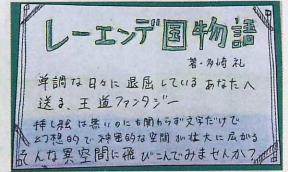 レーエンデ国物語
著・多崎 礼
単調な日々に退屈しているあなたへ
送る、王道ファンタジー
挿し絵は無いのにも関わらず文字だけで
幻想的で神密的な空間が壮大に広がる
そんな異空間に飛びこんでみませんか?